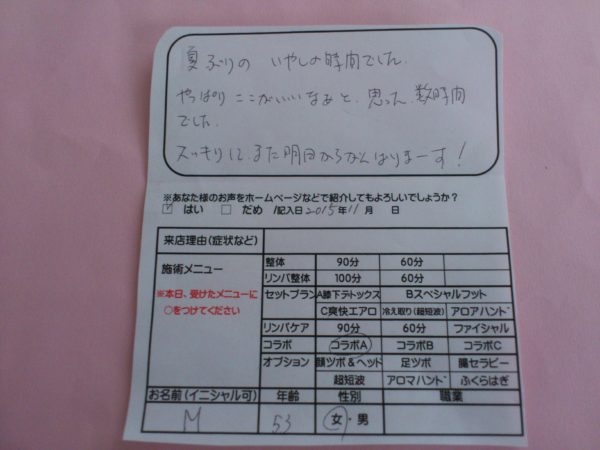 夏ぶりの いやしの時間でした。
やっぱりここがいいなあと、思った、数時間
でした。
スッキリして、また明日からがんばりまーす!
※あなた様のお声をホームページなどで紹介してもよろしいでしょうか?
☑ はい □ だめ /記入日 2015年 11月 日
来店理由(症状など)
施術メニュー
※本日、受けたメニューに
○をつけてください
整体 90分 60分
リンパ整体 100分 60分
セットプラン A膝下デトックス Bスペシャルフット
C爽快エアロ 冷え取り(超短波) アロアハンド
リンパケア 90分 60分 フェイシャル
コラボ コラボA コラボB コラボC
オプション 顔ツボ&ヘッド 足ツボ 腸セラピー
超短波 アロマハンド ふくらはぎ
お名前(イニシャル可) 年齢 性別 職業
M 53 女・男